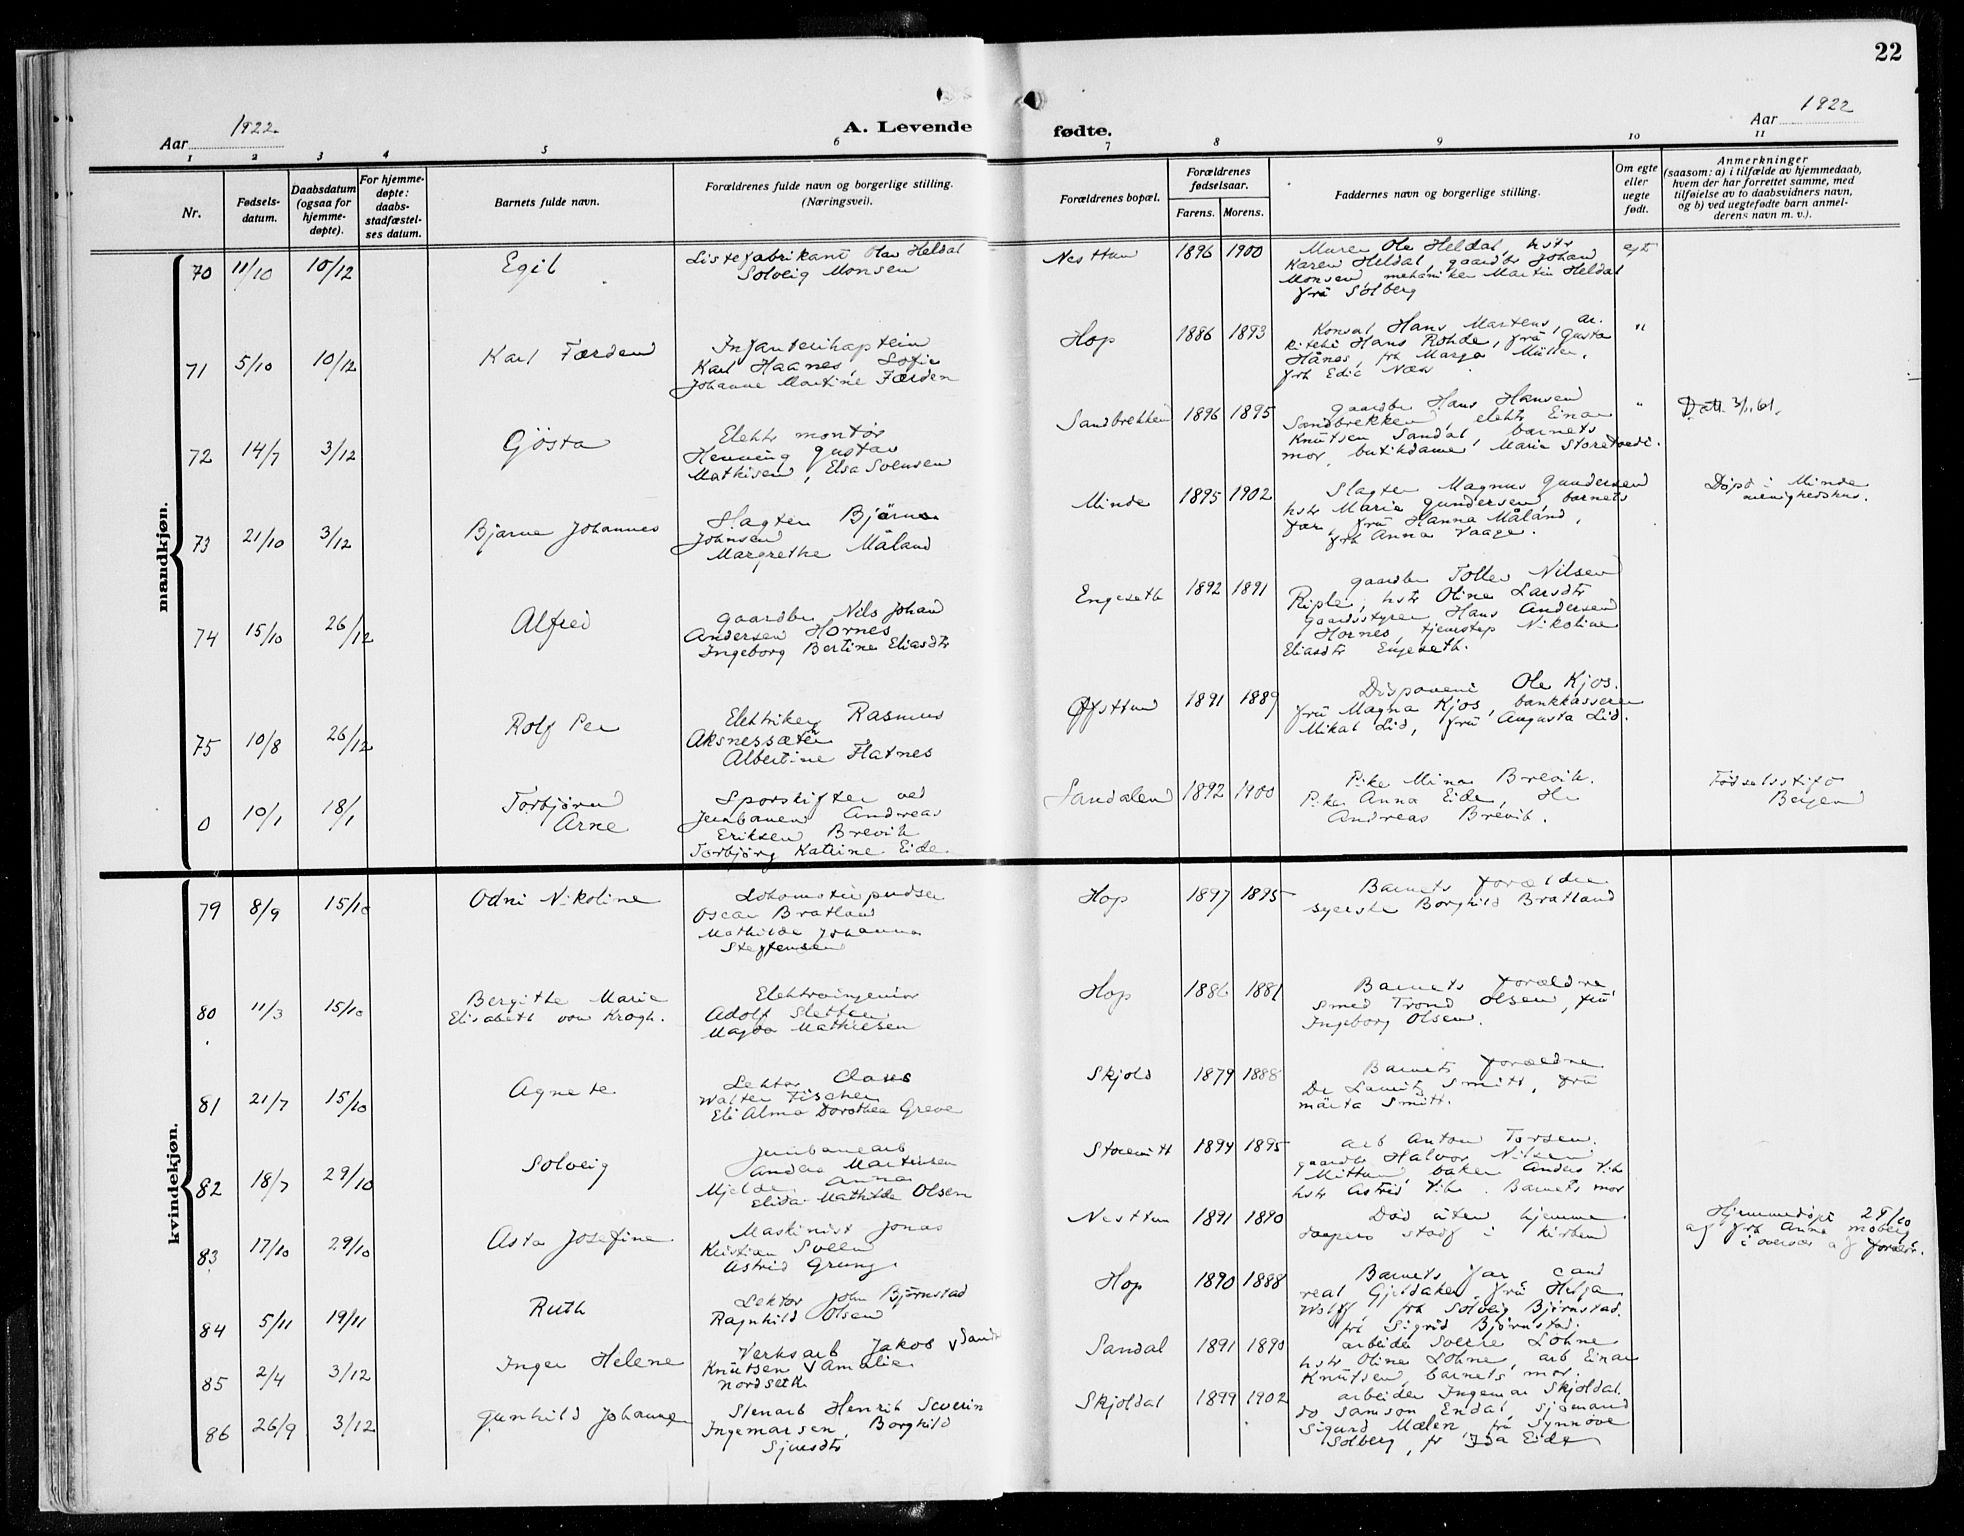 22
Aar 1922.
A. Levende
fødte.
Aar 1922
1 2 3 4 5 6 7 8 9 10 11
Nr.
Fødsels-
datum.
Daabsdatum
(ogsaa for
hjemme-
døpte).
For hjemme-
døpte:
daabs-
stadfæstel-
ses datum.
Barnets fulde navn.
Forældrenes fulde navn og borgerlige stilling.
(Næringsvei).
Forældrenes bopæl.
Forældrenes
fødselsaar.
Farens. Morens.
Faddernes navn og borgerlige stilling.
Om egte
eller
uegte
født.
Anmerkninger
(saasom: a) i tilfælde av hjemmedaab,
hvem der har forrettet samme, med
tilføielse av to daabsvidners navn,
og b) ved uegtefødte barn anmel-
derens navn m. v.).
mandkjøn.
70 11/10 10/12 Egil
Listefabrikant Olav Heldal
Solveig Monsen
Nesttun 1896 1900
Maren Ole Heldal, hstr
Karen Heldal, gaardbr Johan
Monsen mekaniker Martin Heldal
frü Solberg
egte
71 5/10 10/12 Karl Færden
Infanterikaptein
Karl Haanes, Sofie
Johanne Martine Færden
Hop 1886 1893
Konsul Hans Martens, ar-
kitekt Hans Rohde, frü Gusta
Hånes, frk Marga Müller,
frk Edie Næss
"
72 14/7 3/12 Gjøsta
Elektr montør
Henning Gustav
Mathisen, Elsa Svensen
Sandbrekken 1896 1895
gaardbr Hans Hansen
Sandbrekken, elektr Einar
Knutsen Sandal, barnets
mor, butikdame Marie Storetvedt.
"
Datt 3/1.61.
73 21/10 3/12 Bjarne Johannes
Slagter Bjarne
Johnsen
Margrethe Måland
Minde 1895 1902
Slagter Magnus Gundersen
hstr Marie Gundersen, barnets
far, frü Hanna Måland,
frk Anna Vaage.
Døpt i Minde
menighedshus.
74 15/10 26/12 Alfred
gaardbr Nils Johan
Andersen Hornes
Ingeborg Bertine Eliasdtr
Engeseth 1892 1891
gaardbr Tollev Nilsen
Riple, hstr Oline Larsdtr
gaardsstyrer Hans Andersen
Hornes, tjenstep Nikoline
Eliasdtr Engeseth.
75 10/8 26/12 Rolf Per
Elektriker Rasmus
Aksnessæter
Albertine Flatnes
Øfsttun 1891 1889
Disponent Ole Kjos.
frü Magna Kjos, bankkasserer
Mikal Lid, frü Augusta Lid.
0 10/1 18/1 Torbjørn
Arne
Sporskifter ved
Jernbanen Andreas
Eriksen Brevik
Torbjørg Katrine Eide.
Sandalen 1892 1900
Pike Mina Brevik.
Pike Anna Eide, Hr
Andreas Brevik.
Fødselsstift
Bergen
kvindekjøn.
79 8/9 15/10 Odni Nikoline
Lokomotivpudser
Oscar Bratland
Mathilde Johanna
Steffensen
Hop 1897 1895
Barnets forældre.
syerske Borghild Bratland
80 11/3 15/10 Bergithe Marie
Elisabeth von Krogh.
Elektroingeniør
Adolf Sletten
Magda Mathiesen
Hop 1886 1881
Barnets forældre,
smed Trond Olsen, frü
Ingeborg Olsen.
81 21/7 15/10 Agnete
Lektor Claus
Walter Fischer
Eli Alma Dorothea Greve
Skjold 1879 1888
Barnets forældre
Dr Lauritz Smitt, frü
Märta Smitt.
82 18/7 29/10 Solveig
Jernbanearb
Anders Martinsen
Mjelde Anna
Elida Mathilde Olsen
Storemitt 1894 1895
arb Anton Torsen.
gaardbr Halvor Nilsen
Mittun, baker Anders Vik
hstr Astrid Vik. Barnets mor
83 17/10 29/10 Asta Josefine
Maskinist Jonas
Kristian Sveen
Astrid Grung.
Nesttun 1891 1890
Död uten hjemme-
daapens stadf i kirken
Hjemmedøpt 29/10
af frk Anna Moberg
i overvær af forældr.
84 5/11 19/11 Ruth
Lektor John Bjørnstad
Ragnhild Olsen
Hop 1890 1888
Barnets far cand
real Gjeldaker, frü Helga
Wolff frk Solveig Bjørnstad.
frk Sigrid Bjørnstad.
85 2/4 3/12 Inger Helene
Verksarb Jakob v Sandal
Knutsen v Amalie
Nordseth
Sandal 1891 1890
arbeider Sverre Lohne
hstr Oline Lohne, arb Einar
Knutsen, barnets mor.
86 26/9 3/12 Gunhild Johanne
Stenarb Henrik Severin
Ingemarsen, Borghild
Sjursdtr
Skjoldal 1899 1902
arbeider Ingemar Skjoldal.
do Samson Endal sjømand
Sigurd Mælen, frü Synnøve
Solberg, fr Ida Eide